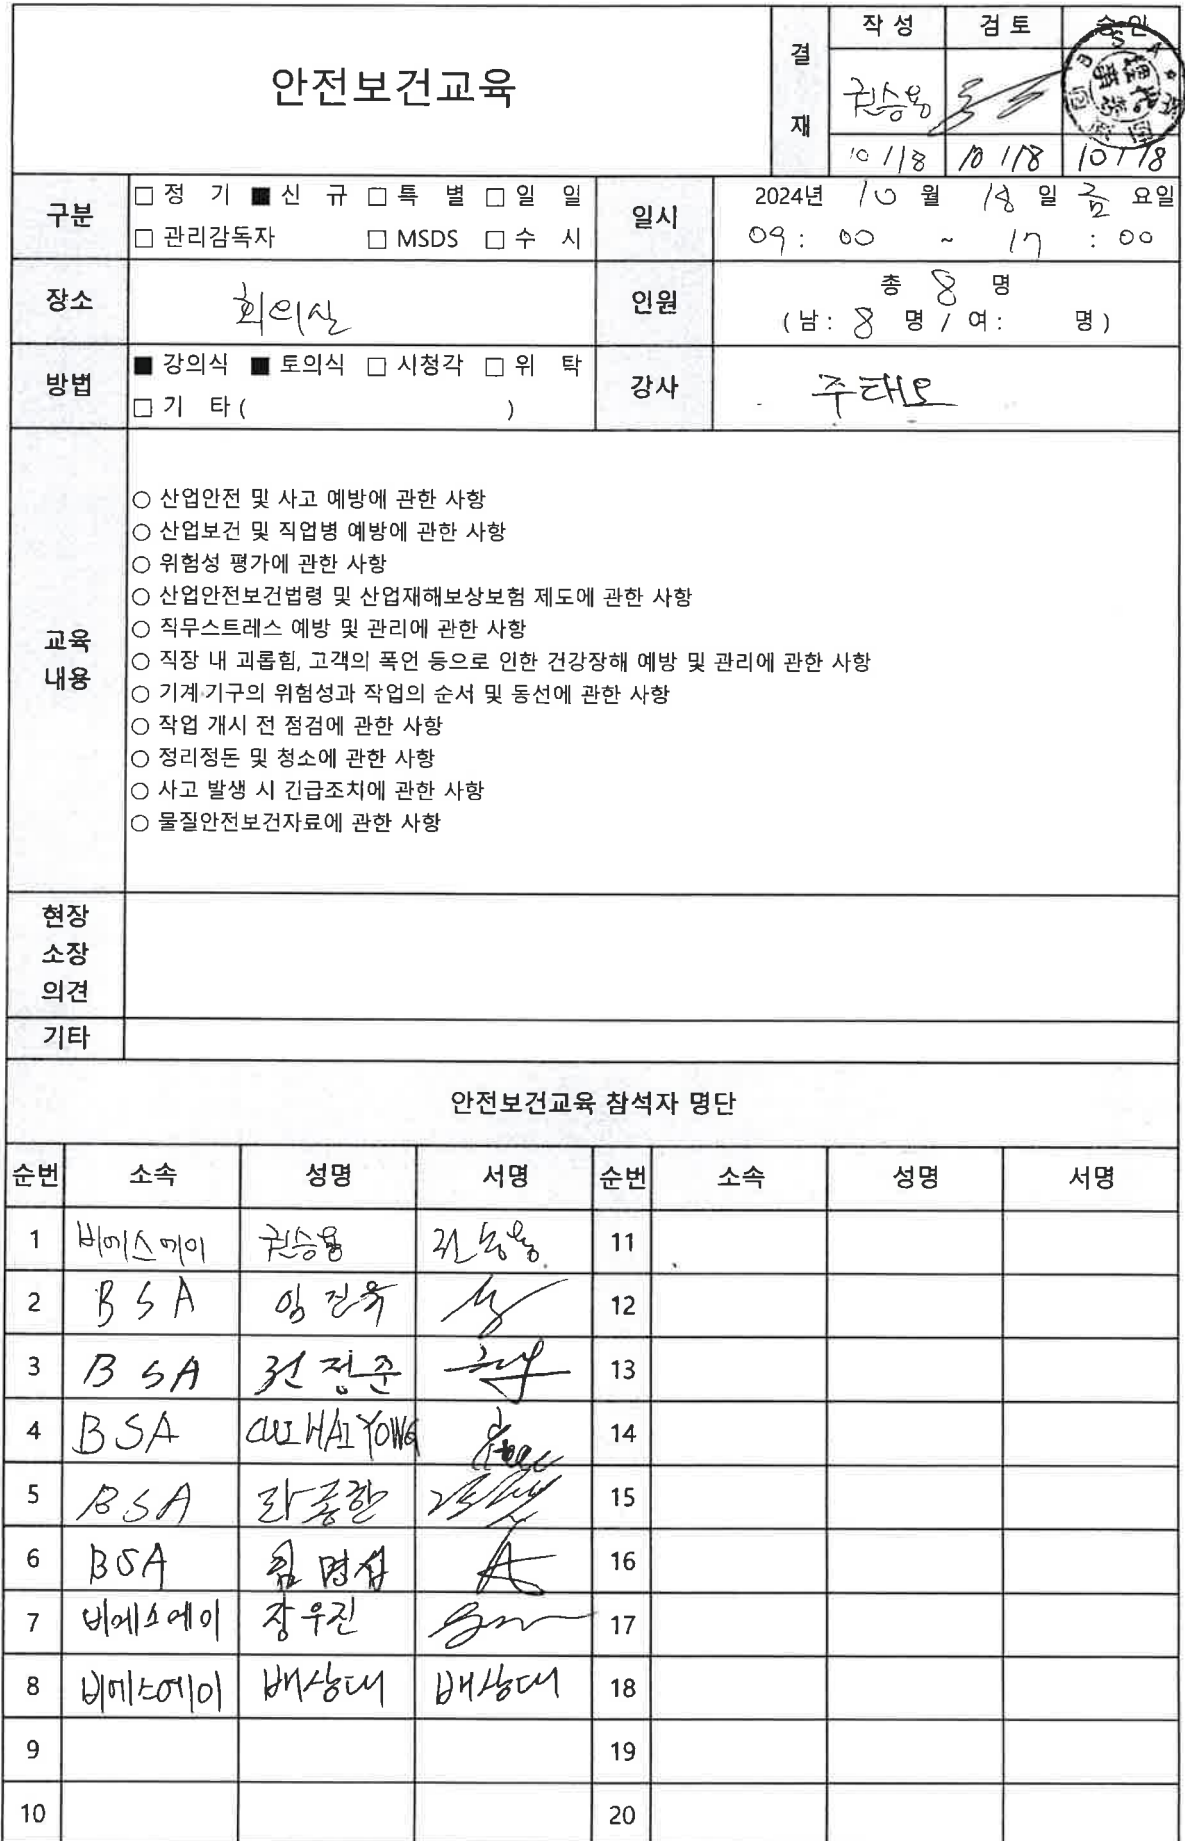 안전보건교육
결재
작성 검토 승인
권승용
10/18 10/18 10/18
구분
□ 정 기 ■ 신 규 □ 특 별 □ 일 일
□ 관리감독자 □ MSDS □ 수 시
일시
2024년 10월 18일 금요일
09 : 00 ~ 17 : 00
장소
회의실
인원
총 8 명
( 남 : 8 명 / 여 : 명 )
방법
■ 강의식 ■ 토의식 □ 시청각 □ 위 탁
□ 기 타 ( )
강사
주태오
교육
내용
○ 산업안전 및 사고 예방에 관한 사항
○ 산업보건 및 직업병 예방에 관한 사항
○ 위험성 평가에 관한 사항
○ 산업안전보건법령 및 산업재해보상보험 제도에 관한 사항
○ 직무스트레스 예방 및 관리에 관한 사항
○ 직장 내 괴롭힘, 고객의 폭언 등으로 인한 건강장해 예방 및 관리에 관한 사항
○ 기계·기구의 위험성과 작업의 순서 및 동선에 관한 사항
○ 작업 개시 전 점검에 관한 사항
○ 정리정돈 및 청소에 관한 사항
○ 사고 발생 시 긴급조치에 관한 사항
○ 물질안전보건자료에 관한 사항
현장
소장
의견
기타
안전보건교육 참석자 명단
순번 소속 성명 서명 순번 소속 성명 서명
1 비에스에이 권승용 권승용 11
2 BSA 임진욱 12
3 BSA 전정준 13
4 BSA CUI HAI YONG 14
5 BSA 라종한 15
6 BSA 김명삼 16
7 비에스에이 장우진 17
8 비에스에이 배상대 배상대 18
9 19
10 20